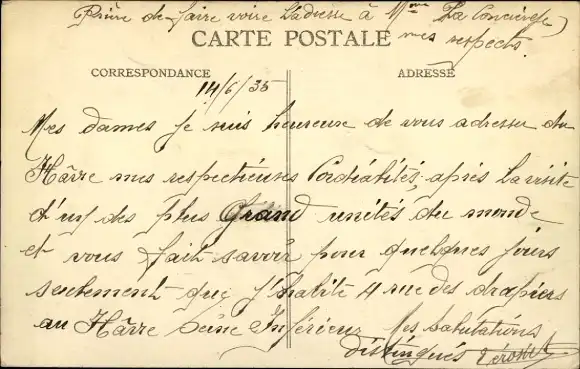 Prière de faire voire l'adresse à Mme La Concierge
mes respects.
CARTE POSTALE
CORRESPONDANCE
ADRESSE
14/6/35
Mes dames je suis heureuse de vous adresser du
Hâvre mes respectieuses Cordiàlités, après la visite
d'un des plus Grand unités du monde
et vous fait savoir pour quelques jours
seulement que j'habite 4 rue des drapiers
au Hâvre Seine Inférieur Mes Salutations
distingués